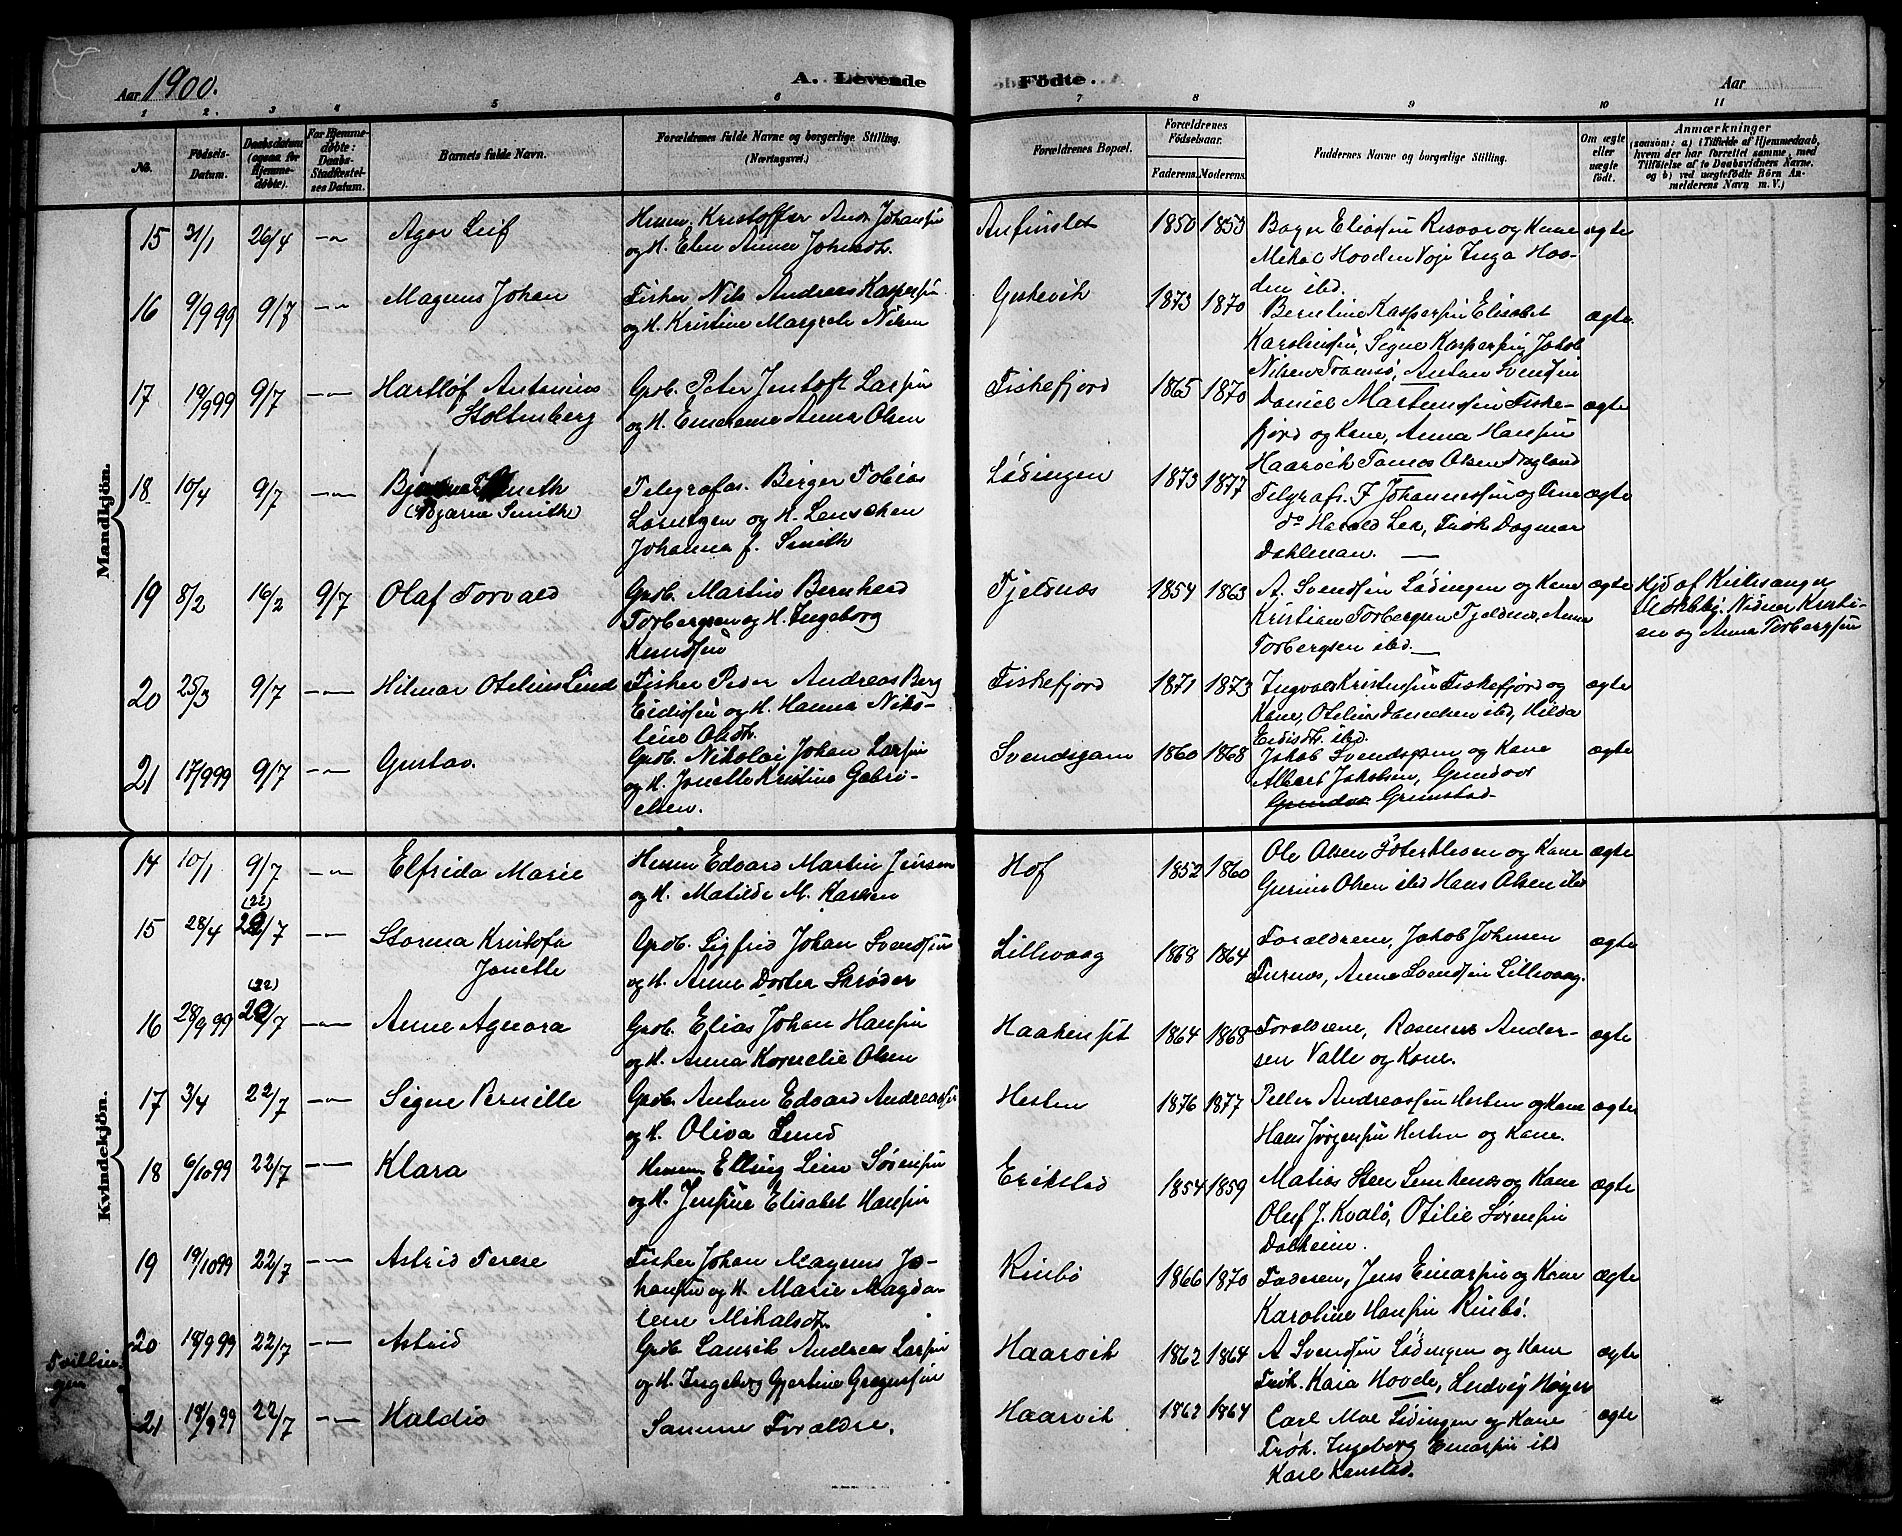 Aar 1900.
A. Levende Fødte.
Aar
1 2 3 4 5 6 7 8 9 10 11
No.
Fødsels-Datum.
Daabsdatum (ogsaa for Hjemmedøbte).
For Hjemmedøbte: Daabs-Stadfæstelses Datum.
Barnets fulde Navn.
Forældrenes fulde Navne og borgerlige Stilling.
(Næringsvei.)
Forældrenes Bopæl.
Forældrenes Fødselsaar.
Faderens. Moderens.
Faddernes Navne og borgerlige Stilling.
Om ægte eller uægte født.
Anmærkninger
Mandkjön.
15 31/1 26/4 -"- Agor Leif
Kristoffer Andr. Johansen
og H. Elen Anna Johnsdt.
Anfinslet 1850 1853
ægte
16 9/9 99 9/7 -"- Magnus Johan
Fisker Nils Andreas Kaspersen
og H. Kristine Margrete Nilsen
1873 1870
Berntine Kaspersen Elisabet
Karolinsen, Signe Kaspersen, Jakob
Nilsen Tromsø, Anton Svendsen
ægte
17 19/9 99 9/7 -"- Hartløf Antonius
Stoltenberg
Grdb. Peter Jentoft Larsen
og H. Emekane Anna Olsen
Fiskefjord 1865 1870
Daniel Martinussen Fiske-
fjord og Kone, Anna Hansen
Haarvik Olsen
ægte
18 10/4 9/7 -"-
(Bjarne Smith)
Telegrafas. Birger Tobias
Lorentzen og H.
Johanna f. Smith
Lødingen 1873 1877
Telgrafs. J Johannessen og Kone
do Harald Lea, Frøk Dagmar
Dahlman.
ægte
19 8/2 16/2 9/7 Olaf Torvald
Grdb. Martin Bernhard
Torbergsen og H. Ingeborg
Knudsen
Fjeldnæs 1854 1863
A. Svendsen Lødingen og Kone
Kristian Torbergsen Fjeldnes, Anna
Torbergsen ibd.
ægte
Hjd af Kirkesanger
og Anna Torbergsen
20 25/3 9/7 -"- Hilmar Otelius Lind
Fisker Peder Andreas Berg
Eidissen og H. Hanna Niko-
line Olsdt.
Fiskefjord 1871 1873
Ingvald Kristensen Fiskefjord og
Kone, Oteline Danielsen ibd, Hilda
Eidisdt. ibd.
ægte
21 17/9 99 9/7 -"- Gustav.
Grdb. Nikolai Johan Larsen
og H. Jonette Kristine Gabri-
elsen.
Svendsgam 1860 1868
Jakob Svendsgam og Kone
Albert Jakobsen, Gundvor
Grimstad.
ægte
Kvindekjön.
14 10/1 9/7 -"- Elfrida Marie
Edvard Martin Jensen
og H. Matilde M. Karlsen
Hof 1852 1860
Ole Olsen og Kone
Gurine Olsen ibd Hans Olsen ibd
ægte
(22)
15 28/4 22/7 -"- Storma Kristofa
Jonette
Grdb. Sigfrid Johan Svendsen
og H. Anne Dortea Skrøder
Lillevaag 1868 1864
Forældrene, Jakob Johnsen
Furnes, Anna Svendsen Lillevaag.
ægte
(22)
16 28/9 99 22/7 -"- Anne Agnora
Grdb. Elias Johan Hansen
og H. Anna Kornelie Olsen
1864 1868
Forældrene, Rasmus Ander-
sen Valle og Kone.
ægte
17 3/4 22/7 -"- Signe Pernille
Grdb. Anton Edvard Andreassen
og H. Oliva Lund
Hesten 1876 1877
Peder Andreassen Hesten og Kone
Hans Jørgensen Hesten og Kone.
ægte
18 6/10 99 22/7 -"- Klara
Elling Lien Sørensen
og H. Jensine Elisabet Hansen
Erikstad 1854 1859
Matias Steen og Kone
Oluf J. Kvalø, Otilie Sørensen
Dalheim.
ægte
19 19/10 99 22/7 -"- Astrid Terese
Fisker Johan Magnus Jo-
hansen og H. Marie Magda-
lene Mikalsdt.
Rinbø 1866 1870
Faderen, Jens Einarsen og Kone
Karoline Hansen Rinbø.
ægte
Tvillin-
ger
20 18/9 99 22/7 -"- Astrid
Grdb. Laurik Andreas Larsen
og H. Ingeborg Gjertine Gregusen
Haarvik 1862 1864
A Svendsen Lødingen og Kone
Frøk. Kaia Hovde, Ludvig Høyer
ægte
21 18/9 99 22/7 -"- Haldis
Samme Forældre.
Haarvik 1862 1864
Carl Moe Lødingen og Kone
Frøk. Ingeborg Einarsen ibd
Karl Kanstad.
ægte